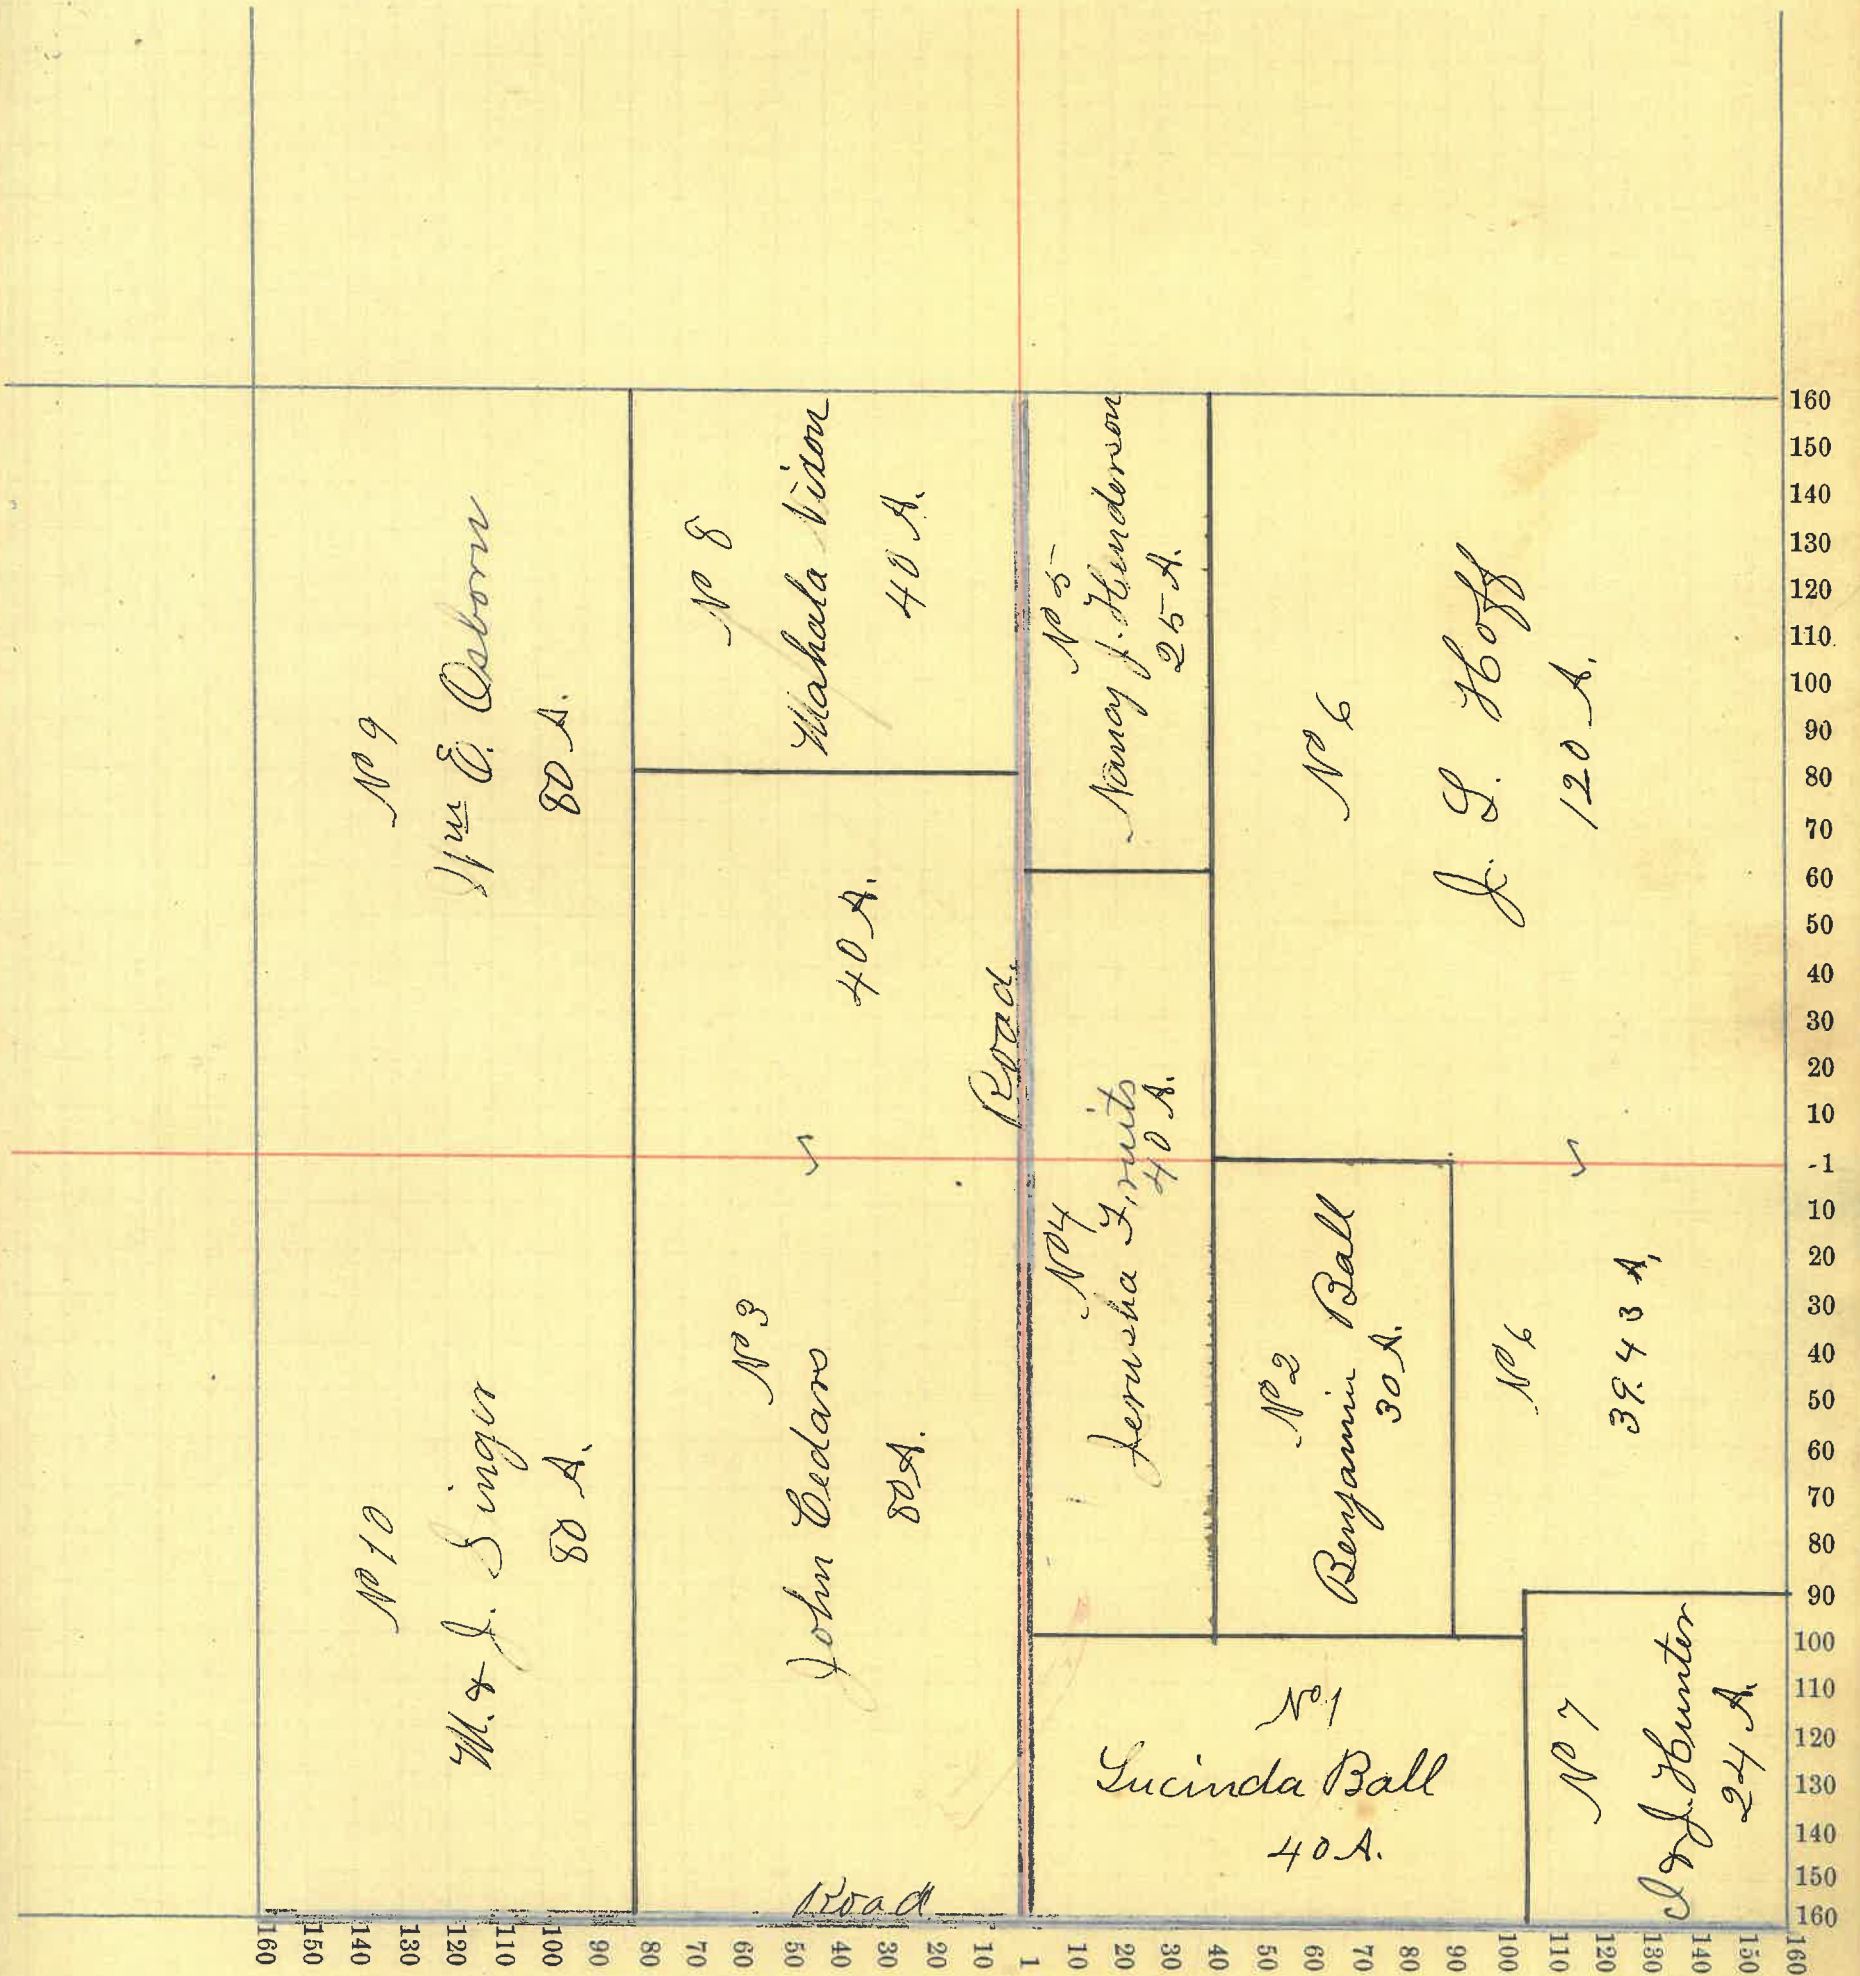 No 9
Wm E. Osborn
80 A.
No 8
Mahala Nixon
40 A.
No 5
Nancy J. Henderson
25 A.
No 6
J. L. Hoff
120 A.
40 A.
Road.
No 10
M. & J. Singer
80 A.
No 3
John Cedars
80 A.
No 4
Jerusha Fruits
40 A.
No 2
Benjamin Ball
30 A.
No 6
39.43 A.
No 1
Lucinda Ball
40 A.
No 7
I & J. Hunter
24 A.
Road
160
150
140
130
120
110
100
90
80
70
60
50
40
30
20
10
-1
10
20
30
40
50
60
70
80
90
100
110
120
130
140
150
160
160 150 140 130 120 110 100 90 80 70 60 50 40 30 20 10 1 10 20 30 40 50 60 70 80 90 100 110 120 130 140 150 160